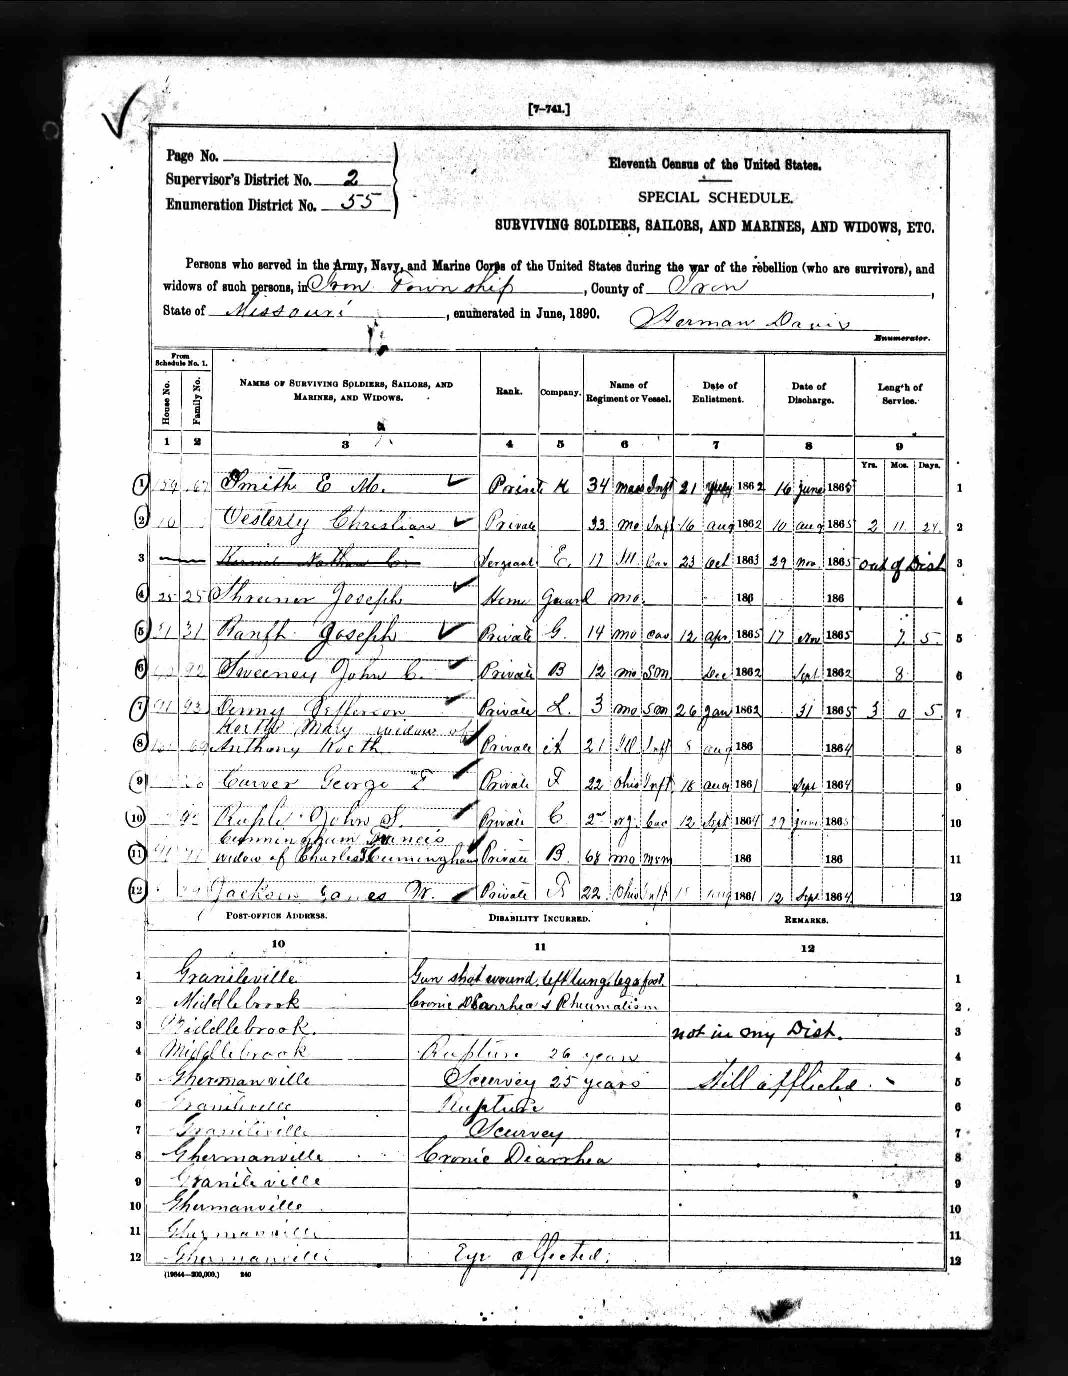 [7-741.]
Page No.
Supervisor's District No. 2
Enumeration District No. 55
Eleventh Census of the United States.
SPECIAL SCHEDULE.
SURVIVING SOLDIERS, SAILORS, AND MARINES, AND WIDOWS, ETC.
Persons who served in the Army, Navy, and Marine Corps of the United States during the war of the rebellion (who are survivors), and
widows of such persons, in Iron Township, County of Iron,
State of Missouri, enumerated in June, 1890. Herman Davis
Enumerator.
From Schedule No. 1.
House No. Family No. NAMES OF SURVIVING SOLDIERS, SAILORS, AND MARINES, AND WIDOWS. Rank. Company. Name of Regiment or Vessel. Date of Enlistment. Date of Discharge. Length of Service.
1 2 3 4 5 6 7 8 9
Yrs. Mos. Days.
1 Smith E M. Private K 34 mass Inft 21 July 1862 16 June 1865 1
2 Oesterly Christian Private 33 mo Inft 16 aug 1862 10 aug 1865 2 11 24 2
3 Sergeant E. 17 Ill. Cav 23 Oct 1863 29 Nov 1865 out of Dist 3
4 25 25 Shreiner Joseph Home Guard mo. 186 186 4
5 31 Ranft Joseph Private G. 14 mo cav 12 Apr 1865 17 Nov 1865 7 5 5
6 92 Sweeney John C. Private B 12 mo SM Dec 1862 Sept 1862 8 6
7 91 93 Denny Jefferson Private L. 3 mo SM 26 Jan 1862 31 1865 3 0 5 7
Korth Mary widow of
8 Anthony Korth Private A 21 Ill Inft 8 aug 186 1864 8
9 Carver George E Private F 22 Ohio Inft 18 aug 1861 Sept 1864 9
10 92 Ruple John S. Private C 2 Cav 12 Sept 1864 29 June 1865 10
Cunningham Francis
11 widow of Charles Cunningham Private B. 68 mo 186 186 11
12 Jackson James W. Private F 22 Ohio Inft 18 aug 1861 12 Sept 1864 12
POST-OFFICE ADDRESS. DISABILITY INCURRED. REMARKS.
10 11 12
1 Graniteville Gun shot wound, left lung, leg & foot. 1
2 Middlebrook Cronic Diarrhea & Rheumatism 2
3 Middlebrook. not in my Dist. 3
4 Middlebrook Rupture 26 years 4
5 Ghermanville Scurvey 25 years Still afflicted 5
6 Graniteville Rupture 6
7 Graniteville Scurvey 7
8 Ghermanville Cronic Diarrhea 8
9 Graniteville 9
10 Ghermanville 10
11 Ghermanville 11
12 Ghermanville Eye affected. 12
(19844—200,000.) 240